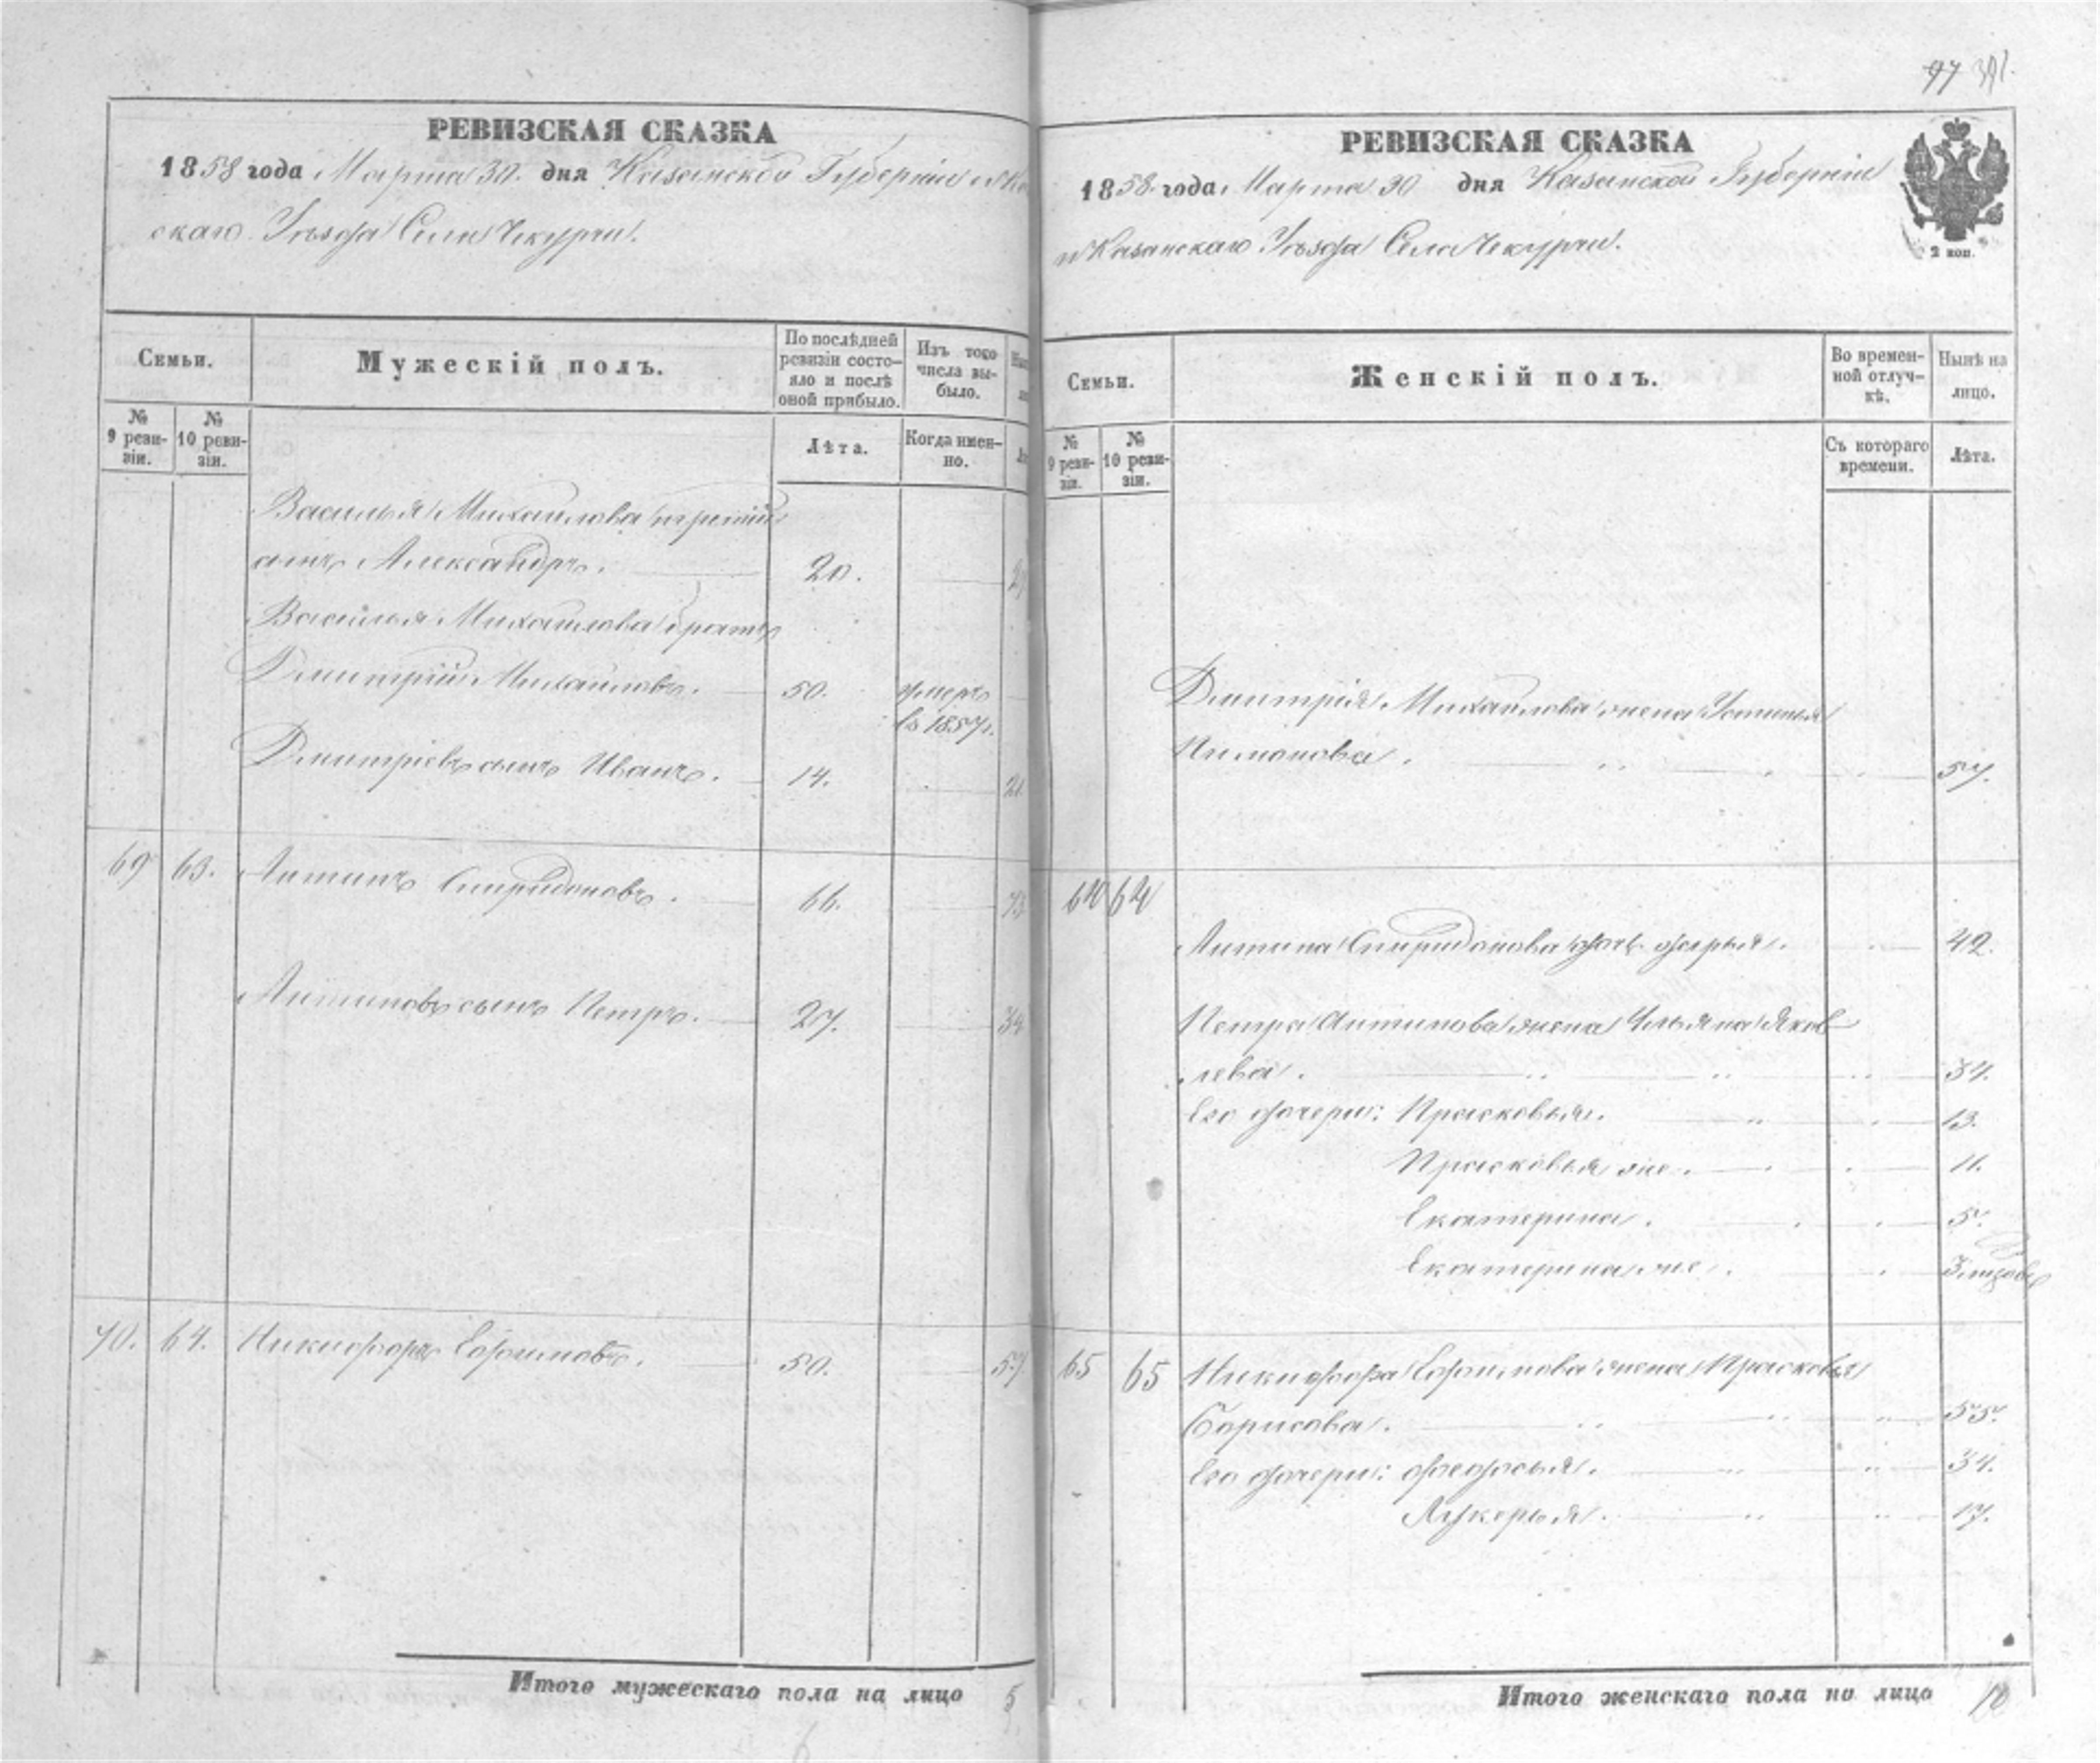 97
РЕВИЗСКАЯ СКАЗКА
1858 года Марта 30. дня Казанской Губерніи и Ка
скаго Уѣзда Села Чекурчи.
Семьи.
Мужескій полъ.
По послѣдней ревизіи состо-
яло и послѣ оной прибыло.
Изъ того числа вы-
было.
№ 9 реви-
зіи.
№ 10 реви-
зіи.
Лѣта.
Когда имен-
но.
Василья Михайлова третій
сынъ Александръ. 20.
Василья Михайлова братъ
Дмитрій Михайловъ. 50. умеръ
въ 1857г.
Дмитріевъ сынъ Иванъ. 14. 21.
69 63. Антипъ Спиридоновъ. 66. 73
Антиповъ сынъ Петръ. 27. 34
70. 64. Никифоръ Ефимовъ. 50. 57
Итого мужескаго пола на лицо 5
РЕВИЗСКАЯ СКАЗКА
1858 года Марта 30 дня Казанской Губерніи
и Казанскаго Уѣзда Села Чекурчи.
2 коп.
Семьи.
Женскій полъ.
Во времен-
ной отлуч-
кѣ.
Нынѣ на
лицо.
№ 9 реви-
зіи.
№ 10 реви-
зіи.
Съ котораго
времени.
Лѣта.
Дмитрія Михайлова жена Устинья
57.
64 64
Антипа Спиридонова дочь Дарья. 42.
Петра Антипова жена Ульяна Яков
лева. 34.
Его дочери: Прасковья. 13.
Прасковья же. 11.
Екатерина. 5.
Екатерина же.
65 65 Никифора Ефимова жена Прасковья
Борисова. 55.
Его дочери: Федосья. 34.
Лукерья. 17.
Итого женскаго пола на лицо 10